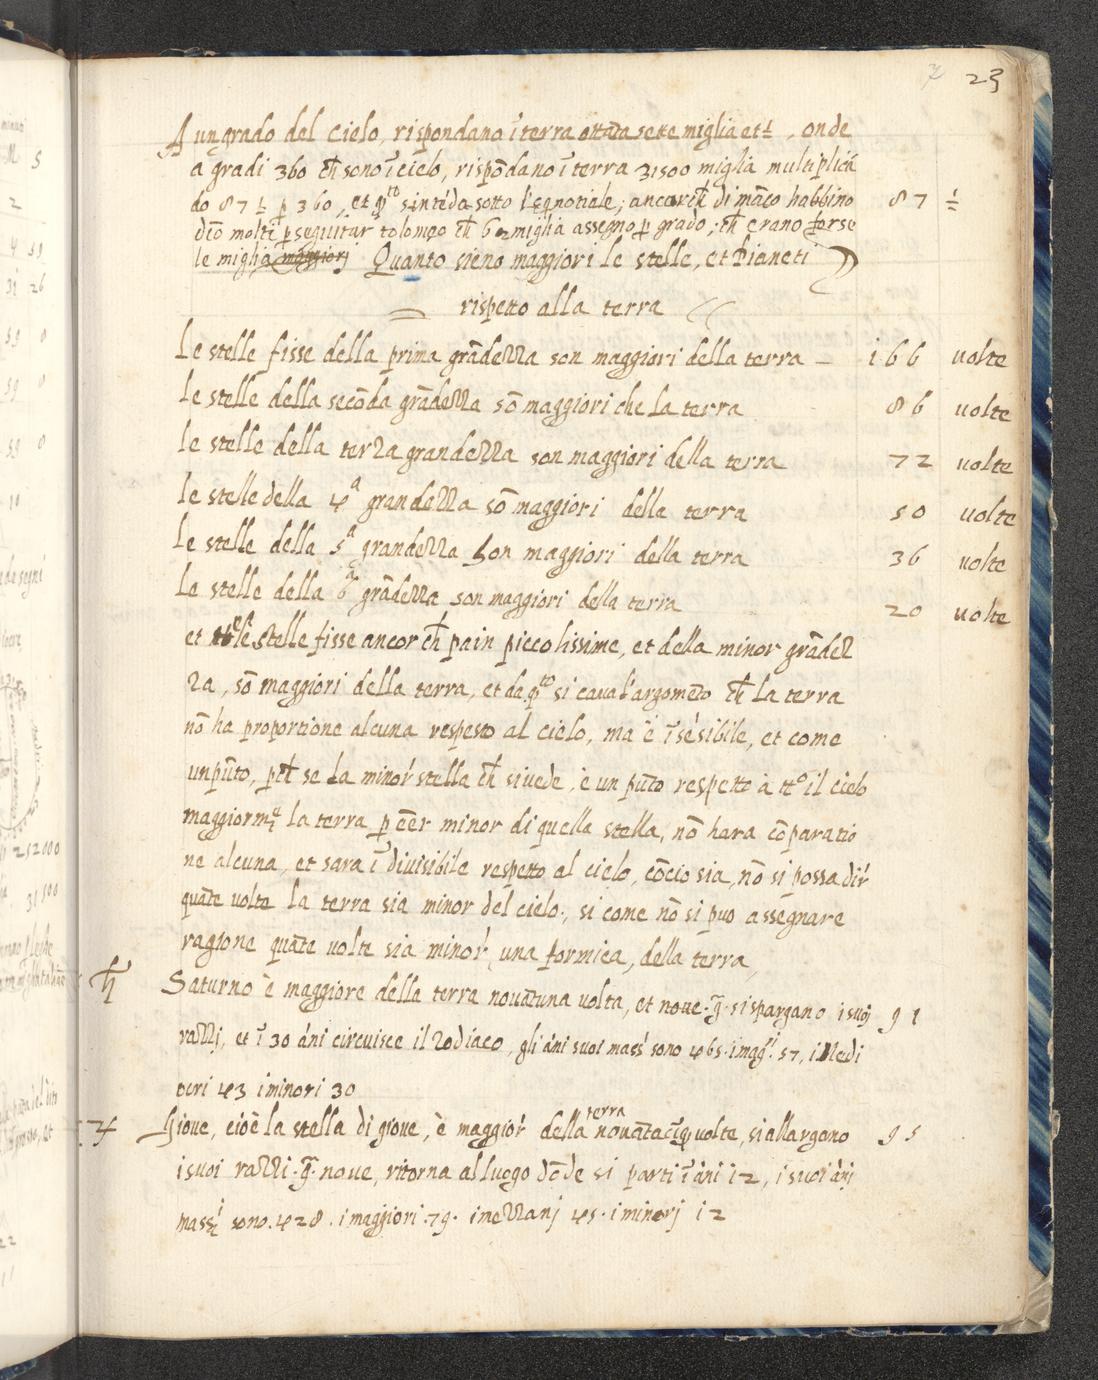 23
A un grado del cielo, rispondano ī terra ottāta sette miglia et ½, onde
a gradi 360 ch̄ sono ī cielo, rispōdano ī terra 31500 miglia multiplicā
do 87 ½ p 360, et q̄sto s'intēda sotto l'eqnotiale; ancorch̄ di māco habbino 87 ½
dēto molti p seguitar tolomeo ch̄ 62 miglia assegno p grado; ch̄ erano forse
le miglia maggiorj Quanto sieno maggiori le stelle, et Pianeti
rispetto alla terra
Le stelle fisse della prima grādezza son maggiori della terra – i66 uolte
Le stelle della secōda grādezza sō maggiori che la terra 86 uolte
le stelle della terza grandezza son maggiori della terra 72 uolte
le stelle della 4ª grandezza sō maggiori della terra 50 uolte
Le stelle della 5ª grandezza son maggiori della terra 36 uolte
Le stelle della 6ª grādezza son maggiori della terra 20 uolte
et le stelle fisse ancor ch̄ pain piccolissime, et della minor grādez
za, sō maggiori della terra, et da q̄sto si caua l'argomēto ch̄ la terra
nō ha proportione alcuna respetto al cielo, ma è ī sēsibile, et come
un pūto, pch̄ se la minor stella ch̄ si uede, è un pūto respetto à tt° il cielo
maggiormte la terra p eēr minor di quella stella, nō hara cōparatio
ne alcuna, et sara ī diuisibile respetto al cielo, cōcio sia, nō si possa dir
quāte uolte la terra sia minor del cielo, si come nō si puo assegnare
ragione quāte uolte sia minor una formica, della terra
♄ Saturno è maggiore della terra nouātuna uolta, et noue g̃ si spargano i suoj 91
razzj, et ī 30 āni circuisce il zodiaco, gli āni suoi massi sono 465 i magri 57, i Medi
ocri 43 i minori 30
♃ Gioue, cioè la stella di gioue, è maggior della terra nouātacīq uolte, si allargano 95
i suoi razzi g̃ noue, ritorna al luogo dōde si partì ī āni i2, i suoi āni
massi sono 428. i maggiori 79. i mezzanj 45. i minorj i2